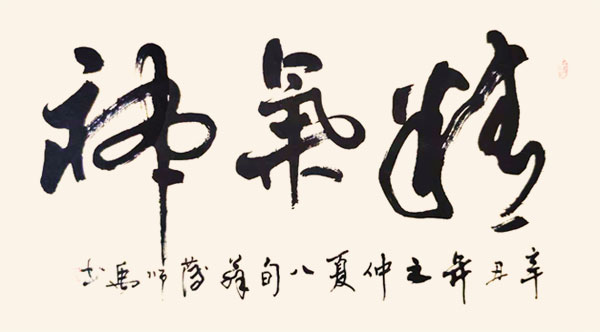 精氣神
辛丑年之仲夏八旬翁薩師禹书